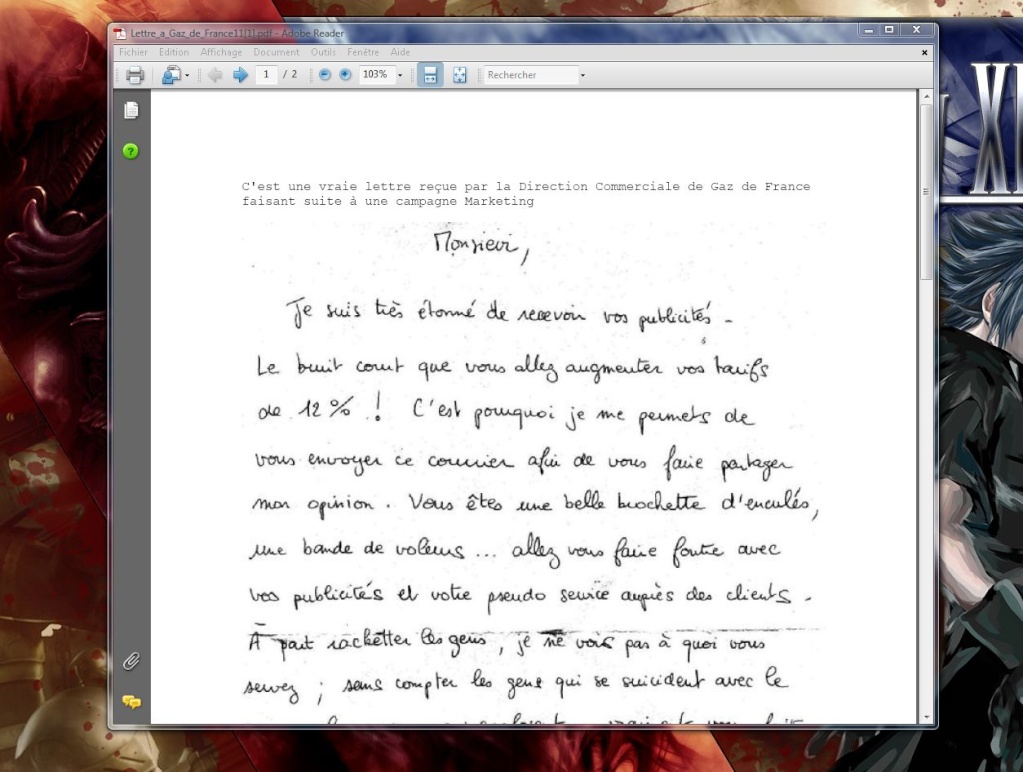 Lettre_a_Gaz_de_France11[1].pdf - Adobe Reader
Fichier Edition Affichage Document Outils Fenêtre Aide
1 / 2 103% Rechercher
XI
C'est une vraie lettre reçue par la Direction Commerciale de Gaz de France
faisant suite à une campagne Marketing
Monsieur,
Je suis très étonné de recevoir vos publicités.
Le bruit court que vous allez augmenter vos tarifs
de 12% ! C'est pourquoi je me permets de
vous envoyer ce courrier afin de vous faire partager
mon opinion. Vous êtes une belle brochette d'enculés,
une bande de voleurs ... allez vous faire foutre avec
vos publicités et votre pseudo service auprès des clients.
A part racketter les gens, je ne vois pas à quoi vous
servez ; sans compter les gens qui se suicident avec le